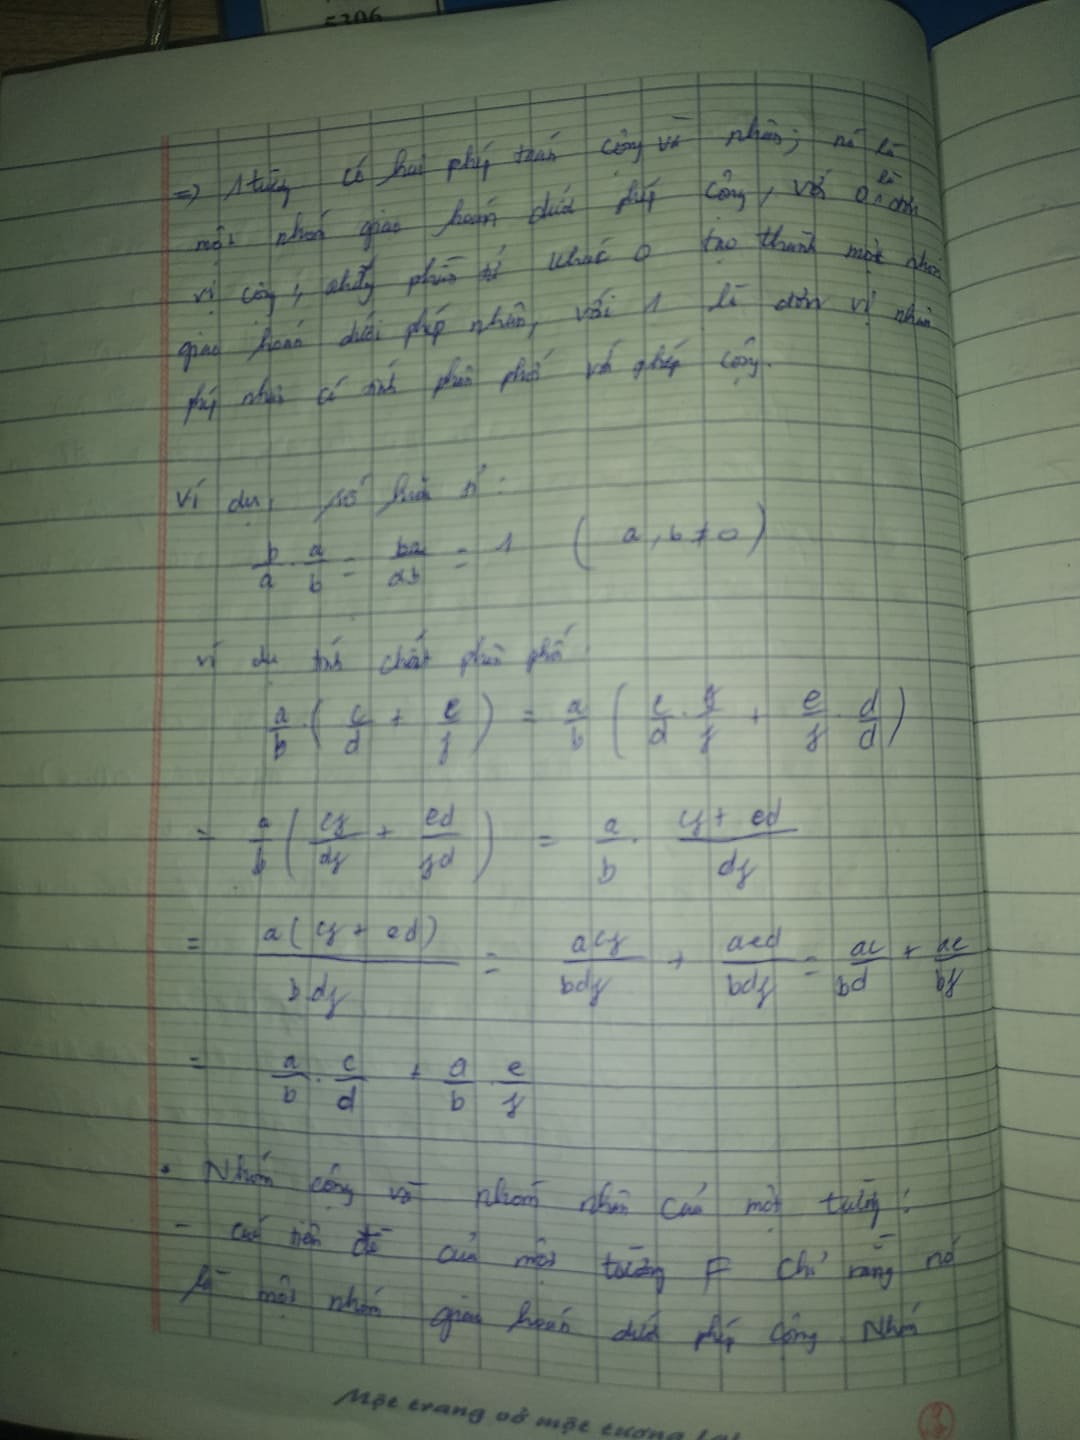 5306
=> 1 trường có hai phép toán cộng và nhân; nó là
một nhóm giao hoán dưới phép cộng, với 0 là đơn
vị cộng; những phần tử khác 0 tạo thành một nhóm
giao hoán dưới phép nhân, với 1 là đơn vị nhân
phép nhân có tính phân phối với phép cộng.
Ví dụ, số hữu tỉ:
b/a · a/b = ba/ab = 1 ( a, b ≠ 0 )
ví dụ tính chất phân phối:
a/b · ( c/d + e/f ) = a/b ( c/d · f/f + e/f · d/d )
= a/b ( cf/df + ed/fd ) = a/b · (cf + ed)/df
= a(cf + ed)/b.df = acf/bdf + aed/bdf = ac/bd + ae/bf
= a/b · c/d + a/b · e/f
• Nhóm cộng và nhóm nhân của một trường:
- các tiên đề của một trường F chỉ rằng nó
là một nhóm giao hoán dưới phép cộng. Nhóm
Một trang vở một tương lai